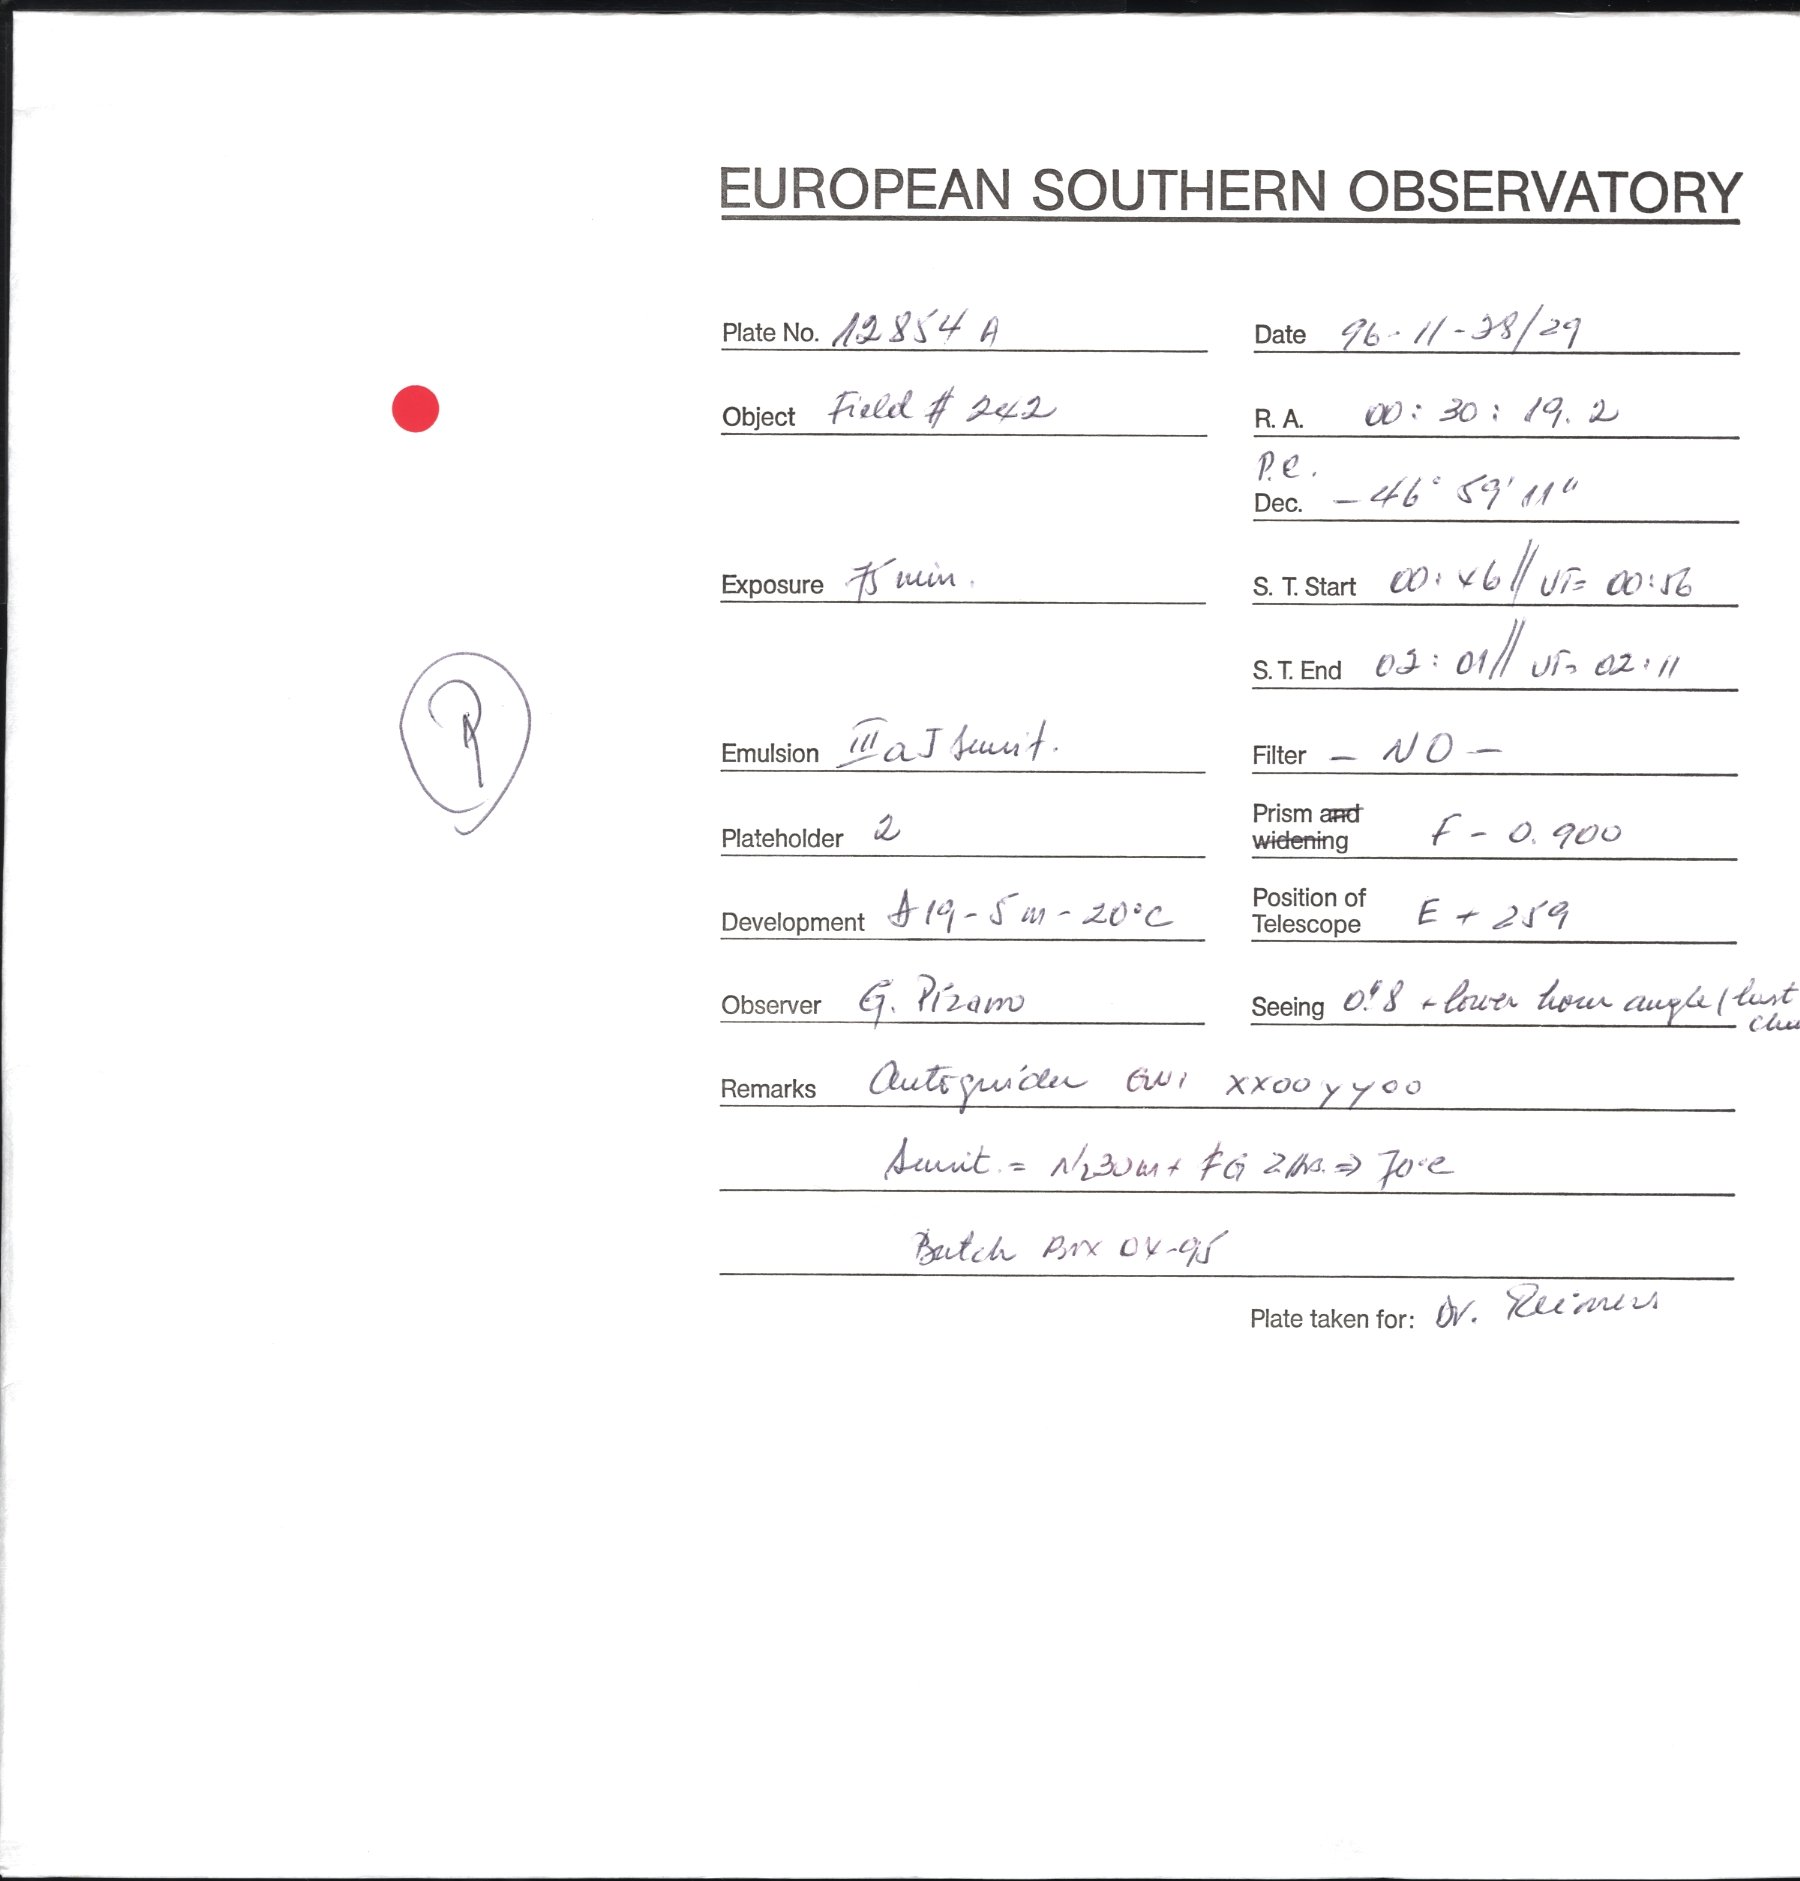 EUROPEAN SOUTHERN OBSERVATORY
Plate No. 12854 A
Date 96-11-28/29
Object Field # 242
R. A. 00: 30: 19.2
P.e.
Dec. - 46° 59' 11"
Exposure 75 min.
S. T. Start 00:46 // UT= 00:56
S. T. End 02:01 // UT= 02:11
Emulsion IIIaJ sensit.
Filter - NO -
Plateholder 2
Prism and widening F - 0.900
Development A19 - 5m - 20°C
Position of Telescope E + 259
Observer G. Pizarro
Seeing 0".8 - lower hour angle / last
Remarks Autoguider GW1 XX00 YY00
Sensit. = N2 30m + FG 2hs. => 70°C
Batch Box 04-95
Plate taken for: Dr. Reimers